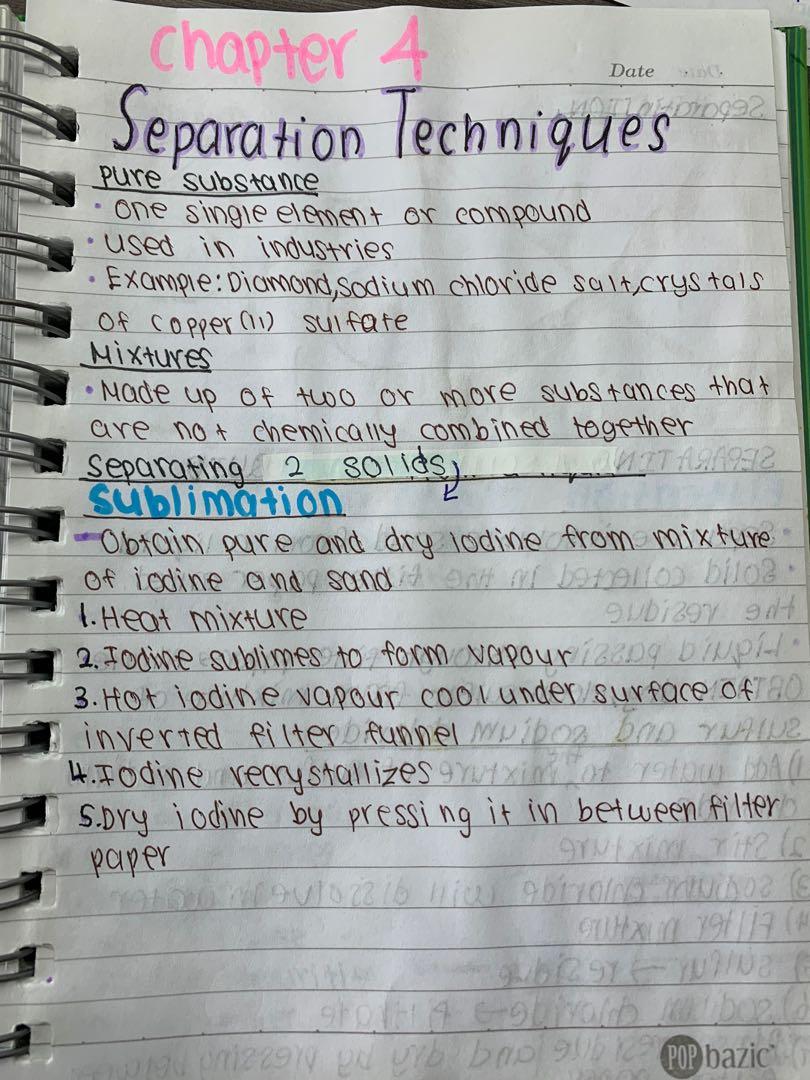 chapter 4
Date
Separation Techniques
pure substance
• one single element or compound
• used in industries
• Example: Diamond, Sodium chloride salt, crystals
of copper (11) sulfate
Mixtures
• Made up of two or more substances that
are not chemically combined together
separating 2 solids
sublimation
- Obtain pure and dry iodine from mixture
of iodine and sand
1. Heat mixture
2. Iodine sublimes to form vapour
3. Hot iodine vapour cool under surface of
inverted filter funnel
4. Iodine recrystallizes
5. Dry iodine by pressing it in between filter
paper
POP bazic